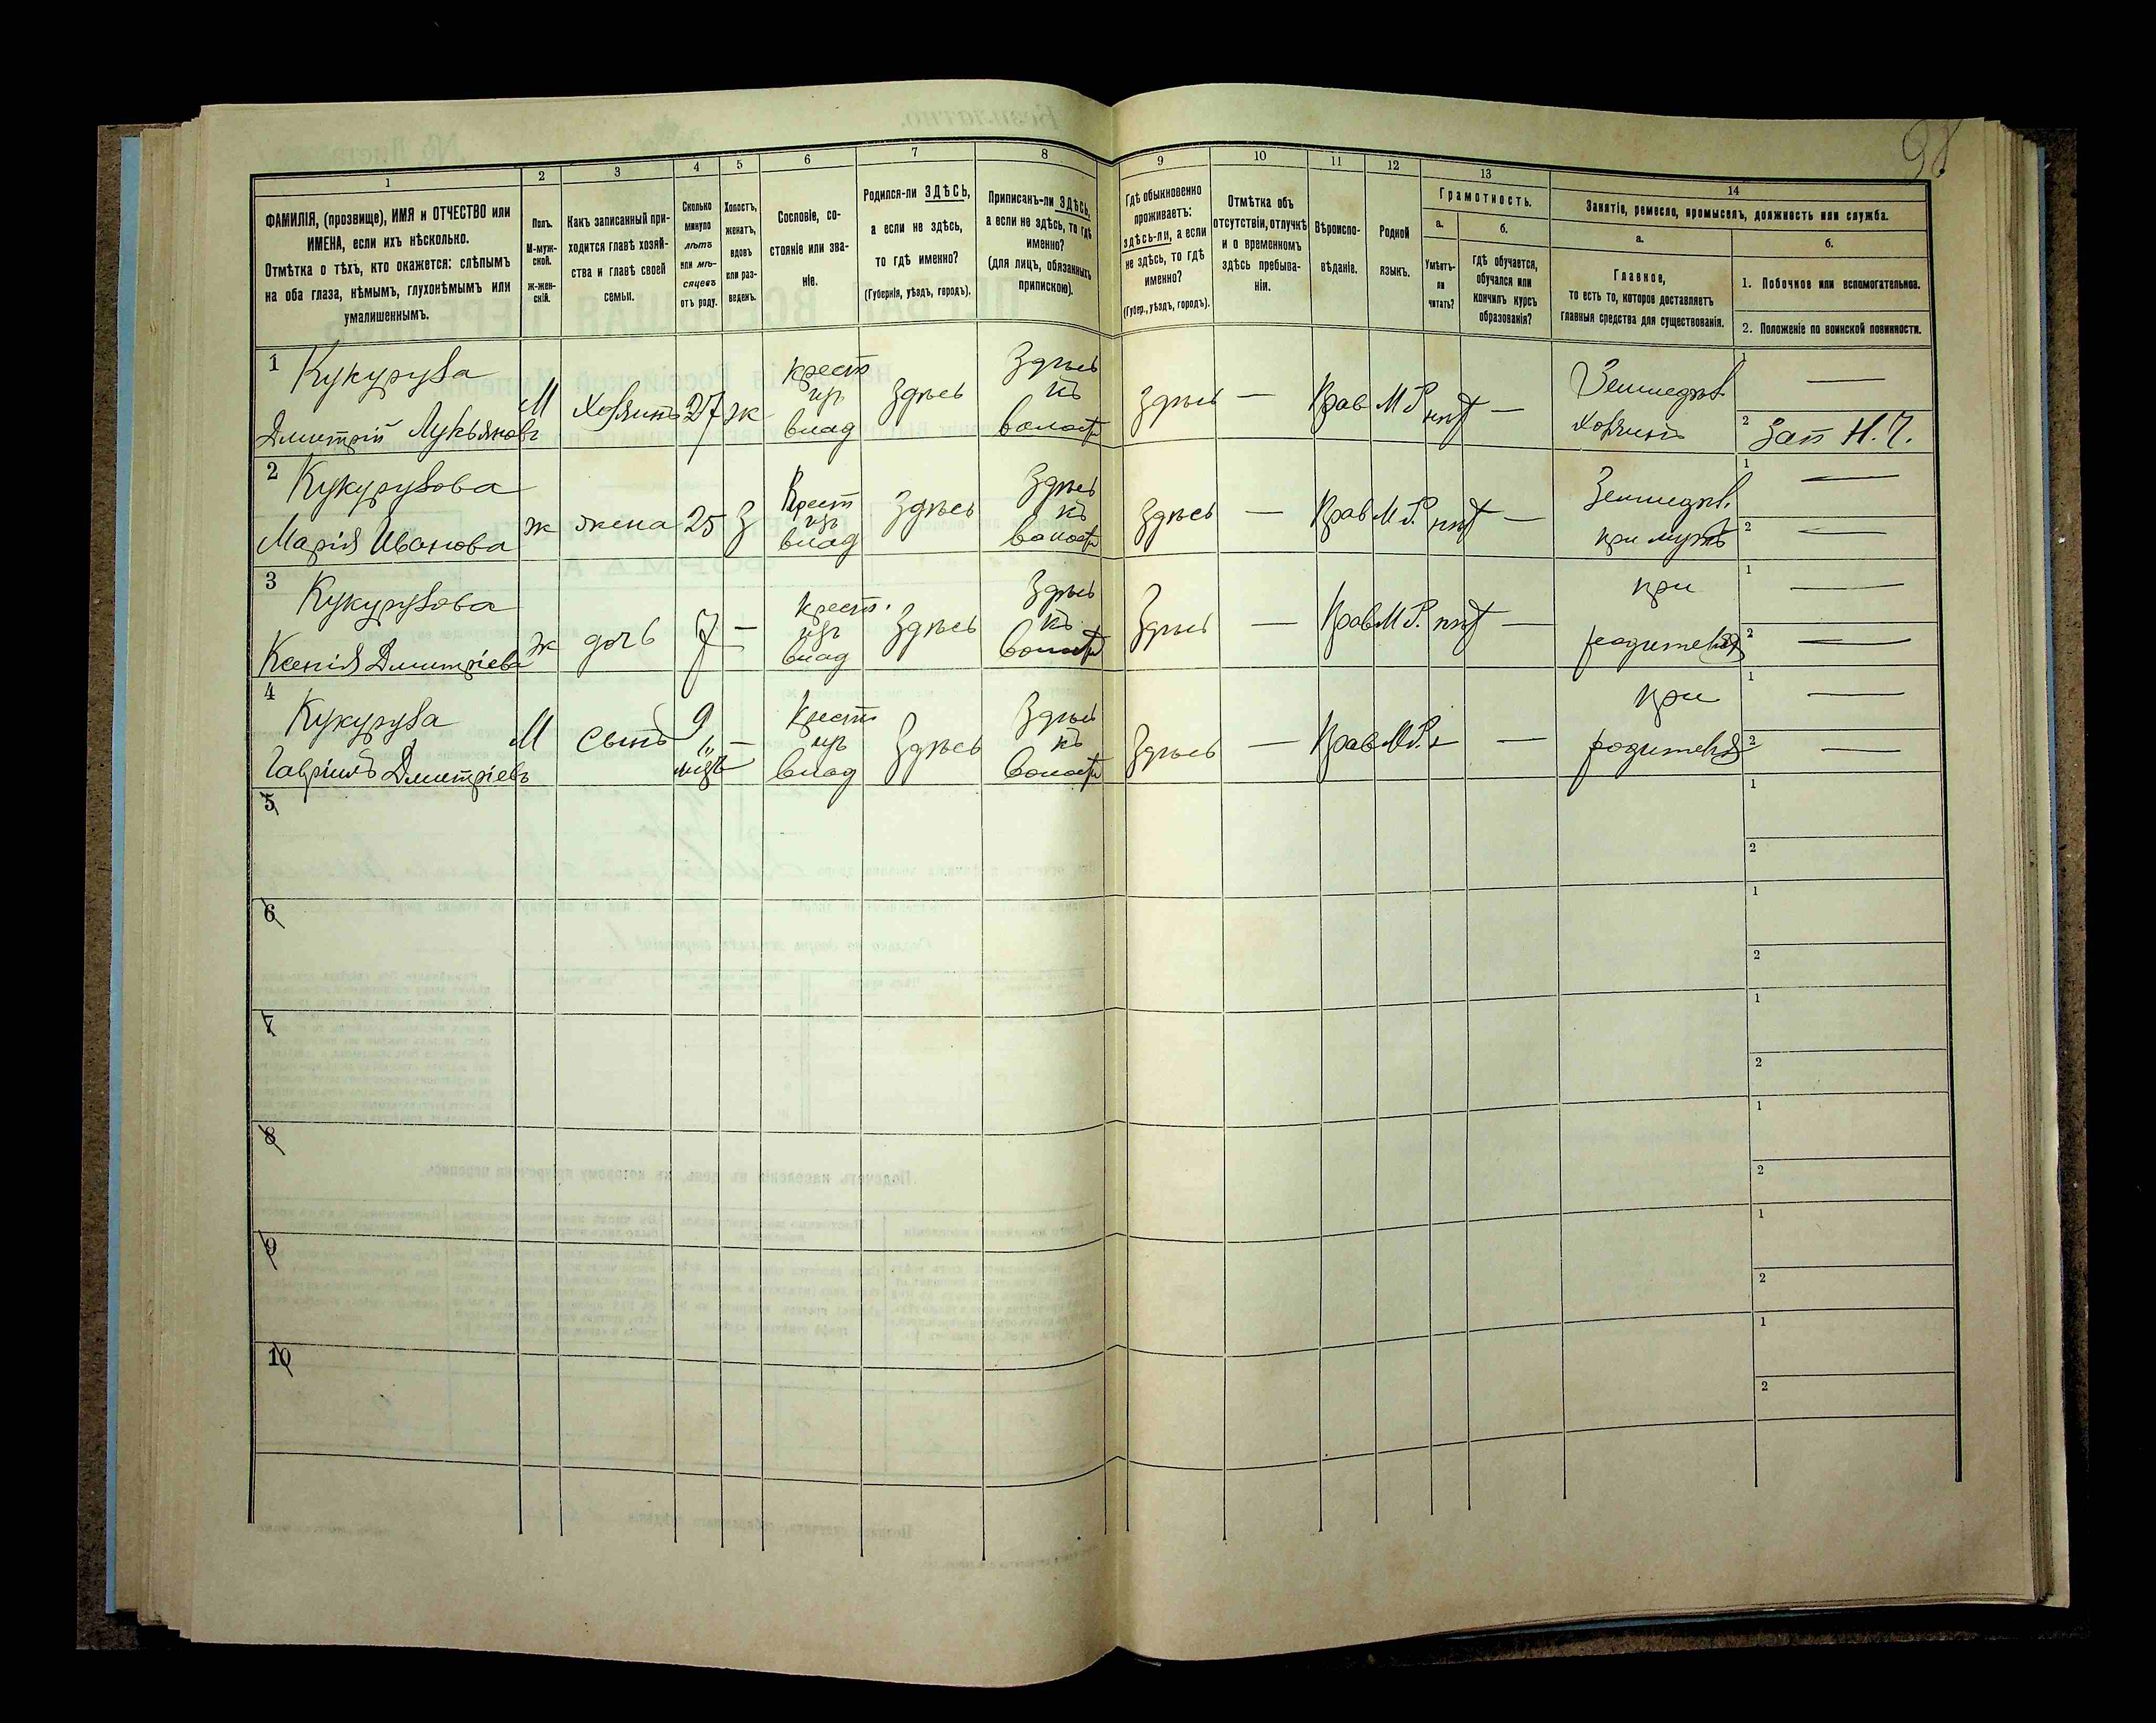 98
1
2
3
4
5
6
7
8
9
10
11
12
13
14
ФАМИЛІЯ, (прозвище), ИМЯ и ОТЧЕСТВО или
ИМЕНА, если ихъ нѣсколько.
Отмѣтка о тѣхъ, кто окажется: слѣпымъ
на оба глаза, нѣмымъ, глухонѣмымъ или
умалишеннымъ.
Полъ.
М-муж-
ской.
Ж-жен-
скій.
Какъ записанный при-
ходится главѣ хозяй-
ства и главѣ своей
семьи.
Сколько
минуло
лѣтъ
или мѣ-
сяцевъ
отъ роду.
Холостъ,
женатъ,
вдовъ
или раз-
веденъ.
Сословіе, со-
стояніе или зва-
ніе.
Родился-ли ЗДѢСЬ,
а если не здѣсь,
то гдѣ именно?
(Губернія, уѣздъ, городъ).
Приписанъ-ли ЗДѢСЬ,
а если не здѣсь, то гдѣ
именно?
(для лицъ, обязанныхъ
припискою).
Гдѣ обыкновенно
проживаетъ:
здѣсь-ли, а если
не здѣсь, то гдѣ
именно?
(Губер., уѣздъ, городъ).
Отмѣтка объ
отсутствіи, отлучкѣ
и о временномъ
здѣсь пребыва-
ніи.
Вѣроиспо-
вѣданіе.
Родной
языкъ.
Грамотность.
а.
Умѣетъ-
ли
читать?
б.
гдѣ обучается,
обучался или
кончилъ курсъ
образованія?
Занятіе, ремесло, промыселъ, должность или служба.
а.
Главное,
то есть то, которое доставляетъ
главныя средства для существованія.
б.
1. Побочное или вспомогательное.
2. Положеніе по воинской повинности.
1 Кукуруза
Дмитрій Лукьяновъ
М
Хозяинъ
27
ж
крест
изъ
влад
Здѣсь
Здѣсь
къ
волости
Здѣсь
—
Прав
М Р
нѣт
—
Земледѣл.
Хозяинъ
1 —
2 Зап Н. Ч.
2 Кукурузова
Марія Иванова
ж
жена
25
З
Крест
изъ
влад
Здѣсь
Здѣсь
къ
волости
Здѣсь
—
Прав
М Р.
нѣт
—
Земледѣл.
при мужѣ
1 —
2 —
3 Кукурузова
Ксенія Дмитріева
ж
дочь
7
—
крест.
изъ
влад
Здѣсь
Здѣсь
къ
волости
Здѣсь
—
Прав
М Р.
нѣт
—
при
родителях
1 —
2 —
4 Кукуруза
Гавріилъ Дмитріевъ
М
сынъ
9
„
мѣс
—
Крест
изъ
влад
Здѣсь
Здѣсь
къ
волости
Здѣсь
—
Прав
М Р.
—
—
при
родителях
1 —
2 —
5
1
2
6
1
2
7
1
2
8
1
2
9
1
2
10
1
2